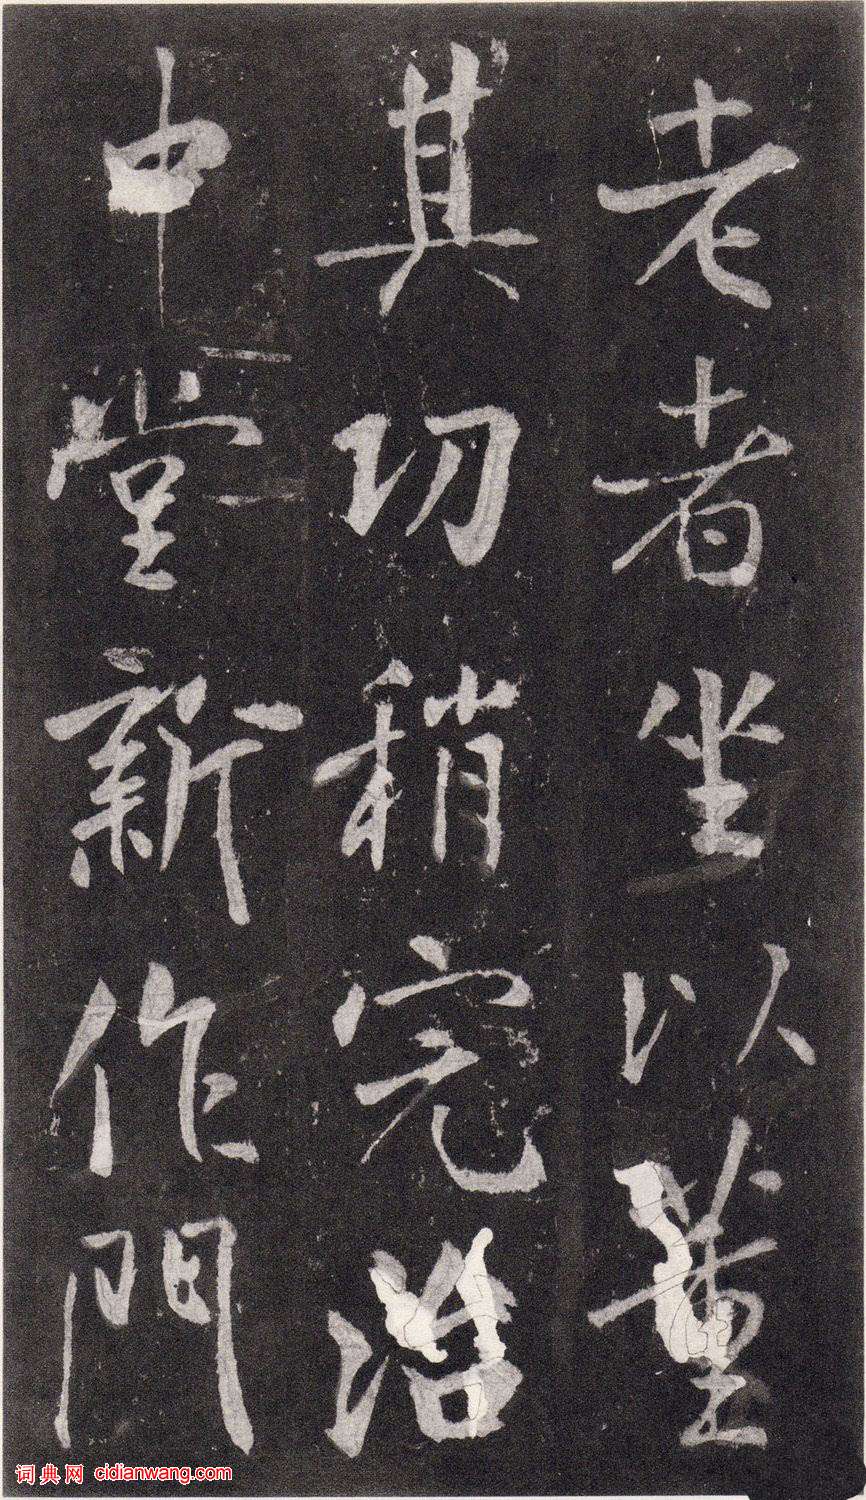 老者坐以董
其切稍完治
中堂新作門
词典网 cidianwang.com